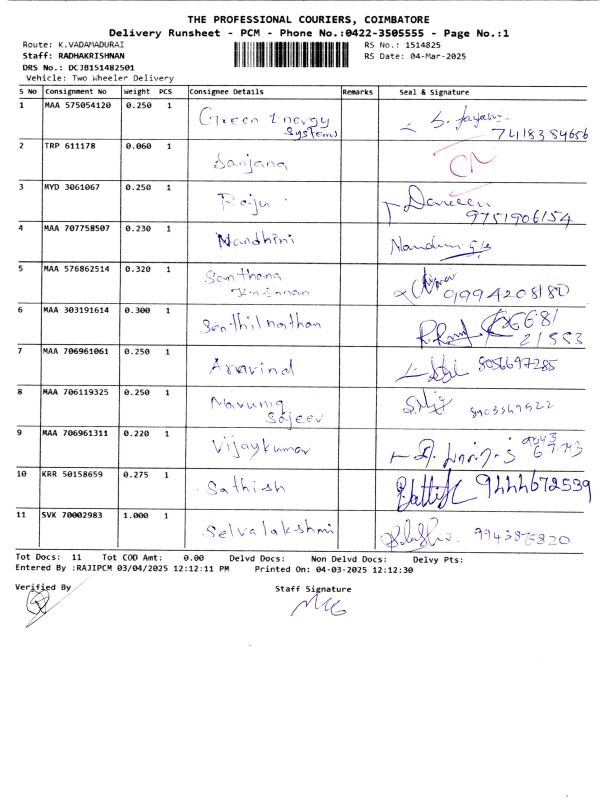 THE PROFESSIONAL COURIERS, COIMBATORE
Delivery Runsheet - PCM - Phone No.:0422-3505555 - Page No.:1
Route: K.VADAMADURAI RS No.: 1514825
Staff: RADHAKRISHNAN RS Date: 04-Mar-2025
DRS No.: DCJB151482501
Vehicle: Two Wheeler Delivery
S No Consignment No Weight PCS Consignee Details Remarks Seal & Signature
1 MAA 575054120 0.250 1 Green Energy Systems S. 7418354656
2 TRP 611178 0.060 1 Sanjana CN
3 MYD 3061067 0.250 1 Raju 9751906154
4 MAA 707758507 0.230 1 Nandhini
5 MAA 576862514 0.320 1 Santhana 9994208180
6 MAA 303191614 0.300 1 Senthilnathan
7 MAA 706961061 0.250 1 Aravind 8056697285
8 MAA 706119325 0.250 1 Sajeev
9 MAA 706961311 0.220 1 Vijaykumar
10 KRR 50158659 0.275 1 Sathish 9444672539
11 SVK 70002983 1.000 1 Selvalakshmi
Tot Docs: 11 Tot COD Amt: 0.00 Delvd Docs: Non Delvd Docs: Delvy Pts:
Entered By :RAJIPCM 03/04/2025 12:12:11 PM Printed On: 04-03-2025 12:12:30
Verified By Staff Signature